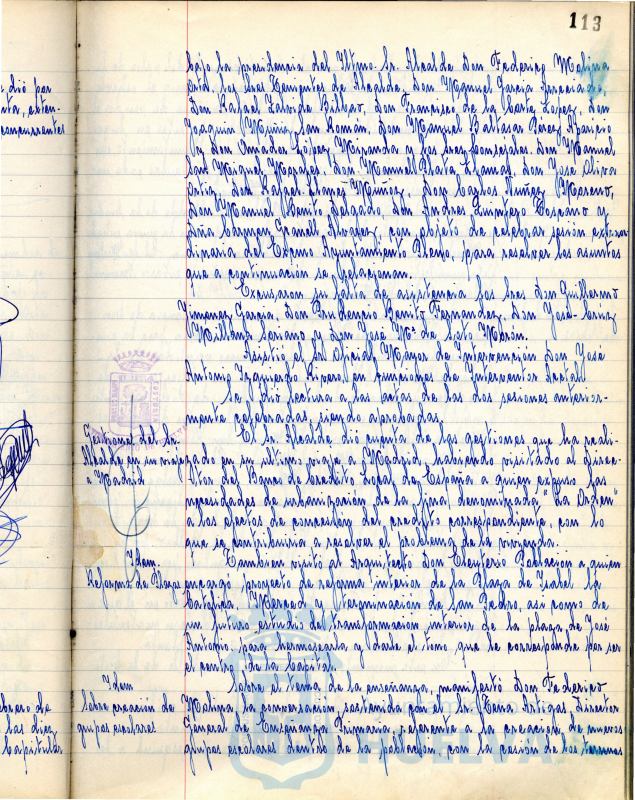 113
bajo la presidencia del Iltmo. Sr. Alcalde Don Federico Molina
Orta, los Sres Tenientes de Alcalde, Don Manuel Garcia
Don Rafael Bilbao, Don Francisco de la Corte Lopez, Don
Joaquin Muñiz San Román, Don Manuel Baltasar Perez Aparicio
y Don Amadeo López Miranda y los Sres Concejales, Don Manuel
San Miguel Morales, Don Manuel Plata Llamas, Don Jose Oliva
Ortiz, Don Rafael Llanes Muñoz, Don Carlos Nuñez Moreno,
Don Manuel Benito Delgado, Don Andres Quintero Toscano y
Dña Carmen Granell Alvarez, con objeto de celebrar sesión extraor
dinaria del Excmo Ayuntamiento Pleno, para resolver los asuntos
que a continuación se relacionan.
Excusaron su falta de asistencia los Sres Don Guillermo
Jimenez Garcia, Don Prudencio Benito Fernandez, Don Jose Cruz
Millan Soriano y Don Jose Mª de Soto Morón.
Asistió el Sr Oficial Mayor de Intervención Don José
Antonio Izquierdo Rivero, en funciones de Interventor
Se dió lectura a las actas de las dos sesiones anterior-
mente celebradas, siendo aprobadas.
Gestiones del Sr.
Alcalde en su viaje
a Madrid
El Sr. Alcalde dió cuenta de las gestiones que ha reali-
zado en su ultimo viaje a Madrid, habiendo visitado al Direc-
tor del Banco de Credito Local de España a quien expuso las
necesidades de urbanización de la finca denominada "La Orden"
a los efectos de concesión del credito correspondiente, con lo
que se contribuiria a resolver el problema de la vivienda.
Idem.
Reforma de Plazas
Tambien visitó al Arquitecto Don Eleuterio Poblacion a quien
encargó proyecto de reforma interior de la Plaza de Isabel la
Catolica, Merced y terminación de San Pedro, asi como de
un futuro estudio del transformación interior de la plaza de José
Antonio, para hermosearla y darle el tono que le corresponde por ser
el centro de la Capital.
Idem
sobre creación de
grupos escolares
Sobre el tema de la enseñanza, manifestó Don Federico
Molina, la conversación sostenida con el Sr. Tena Artigas, Director
General de Enseñanza Primaria, referente a la creación de nuevos
grupos escolares dentro de la población, con la cesión de los terrenos
a dió por
concurrentes
las diez
Capitular
HUELVA